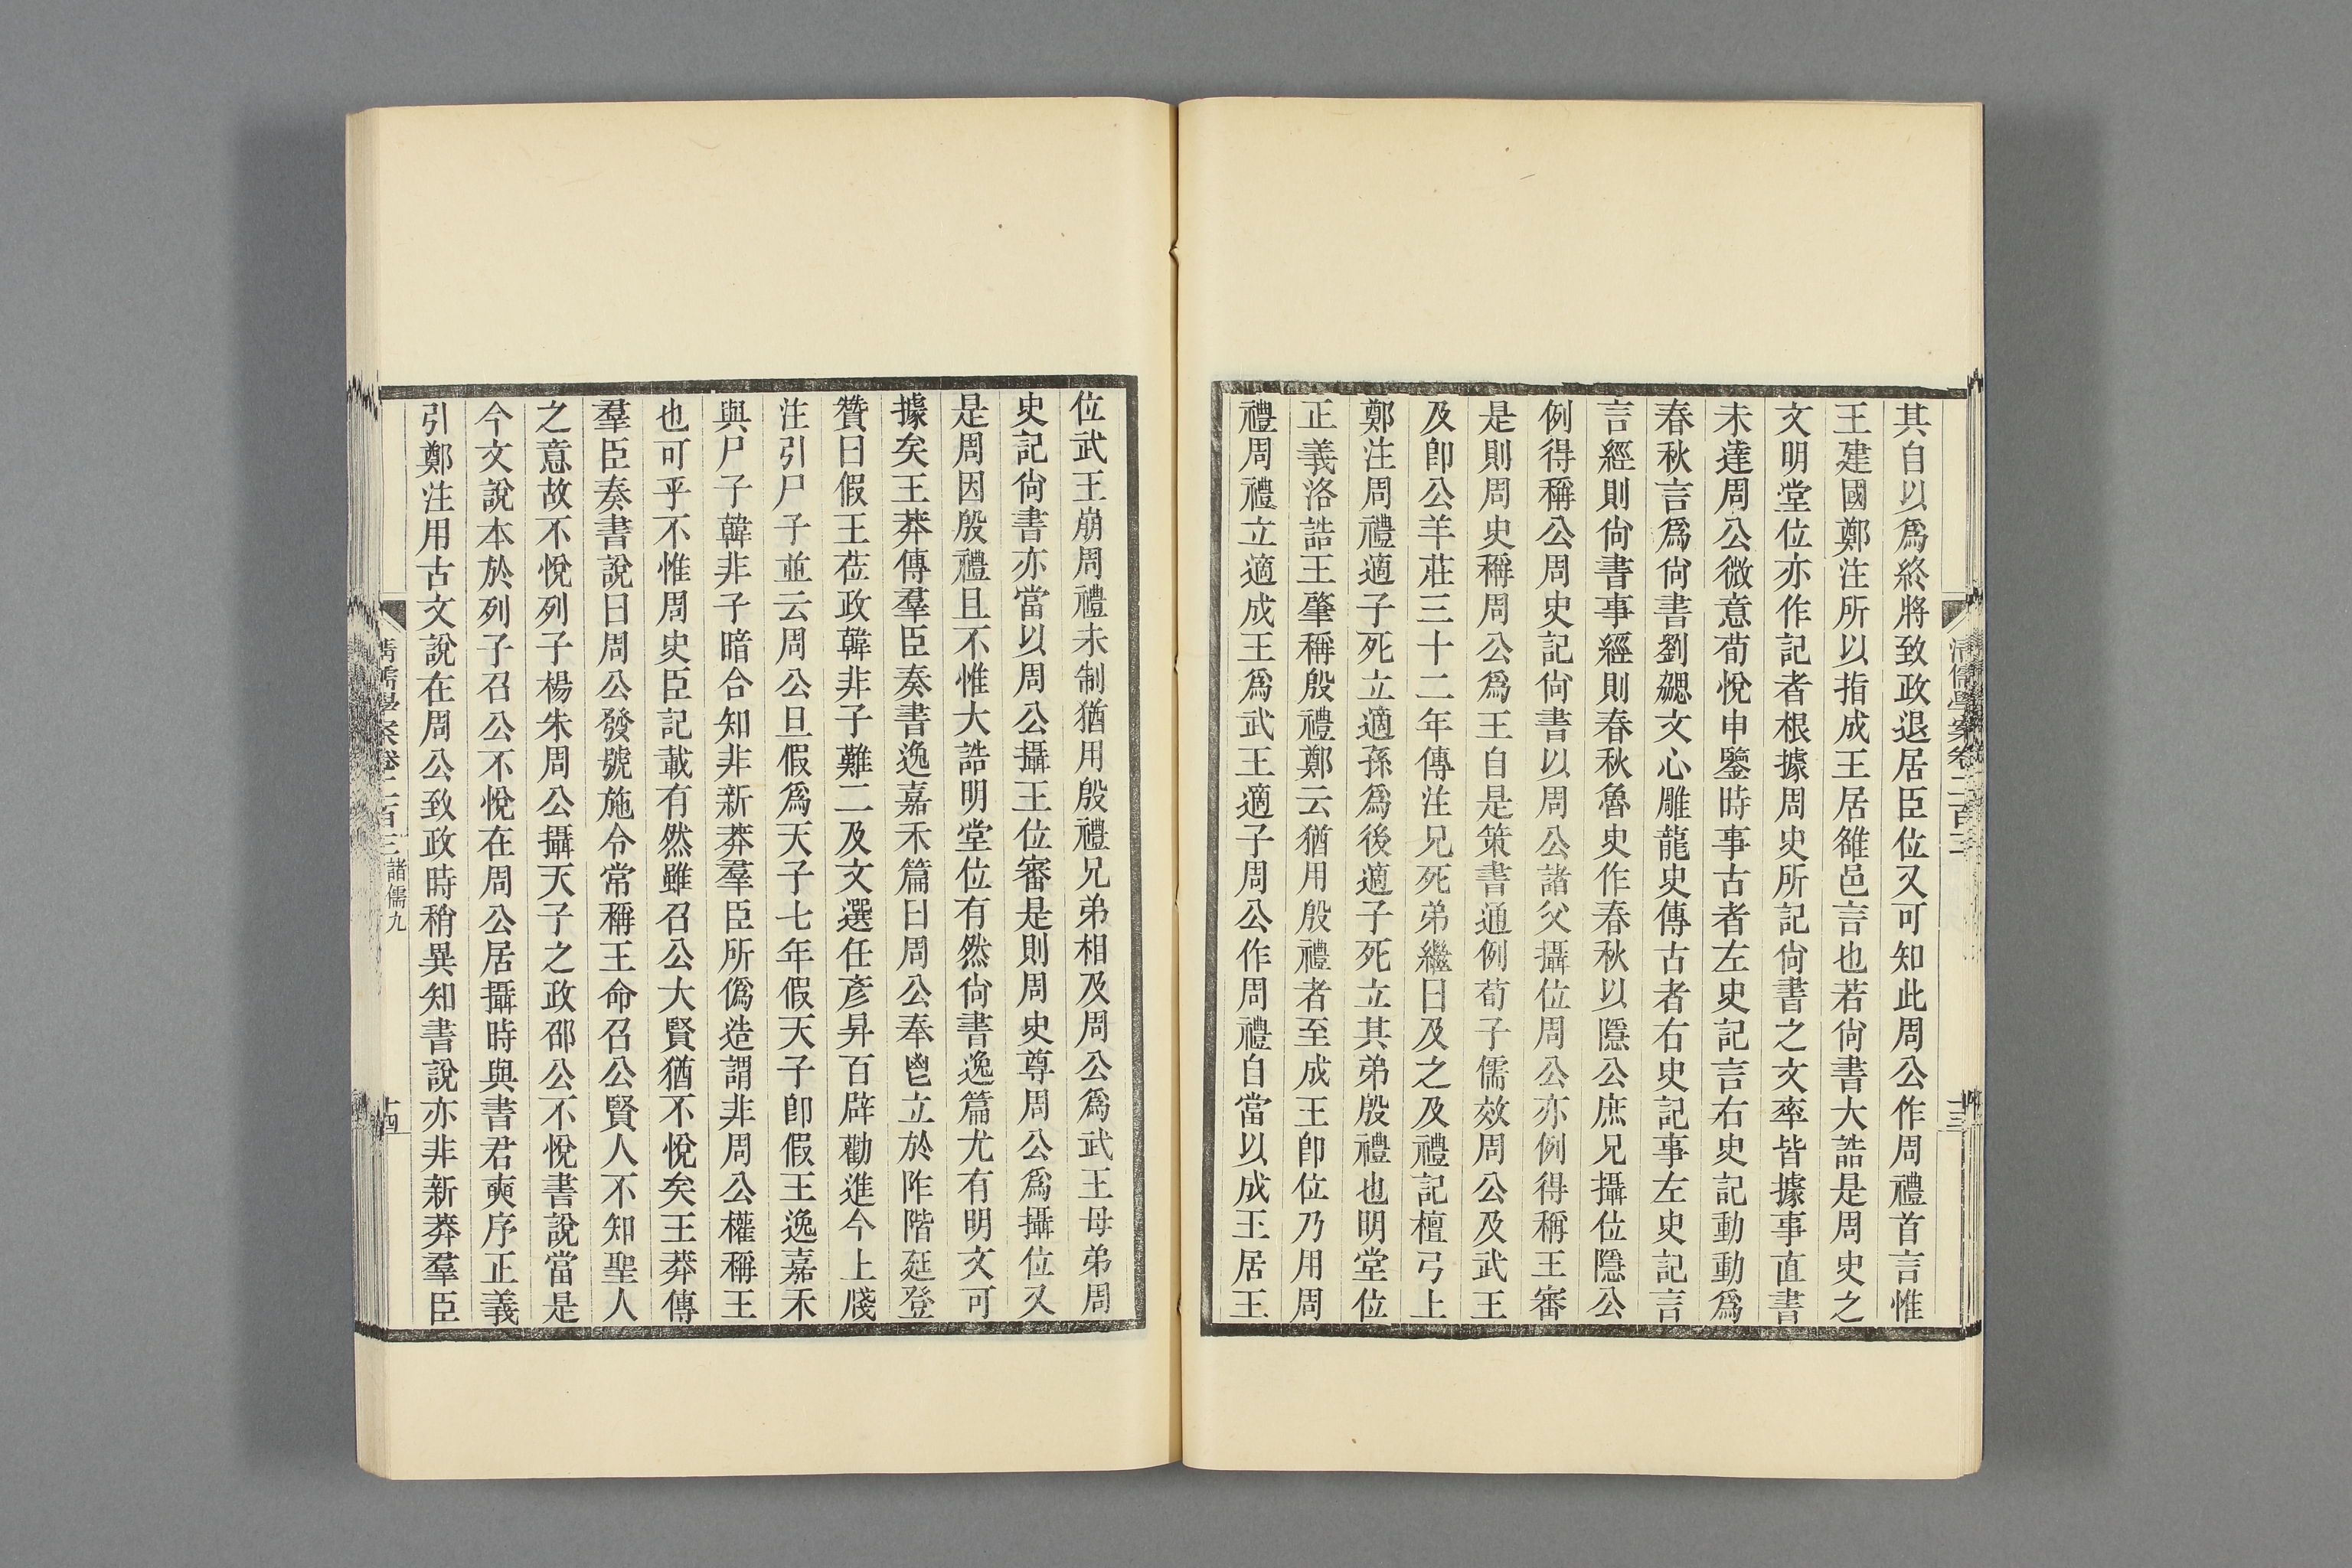 其自以爲終將致政退居臣位又可知此周公作周禮首言惟
王建國鄭注所以指成王居雒邑言也若尙書大誥是周史之
文明堂位亦作記者根據周史所記尙書之文率皆據事直書
未達周公微意荀悅申鑒時事古者左史記言右史記動動爲
春秋言爲尙書劉勰文心雕龍史傳古者右史記事左史記言
言經則尙書事經則春秋魯史作春秋以隱公庶兄攝位隱公
例得稱公周史記尙書以周公諸父攝位周公亦例得稱王審
是則周史稱周公爲王自是策書通例荀子儒效周公及武王
及卽公羊莊三十二年傳注兄死弟繼曰及之及禮記檀弓上
鄭注周禮適子死立適孫爲後適子死立其弟殷禮也明堂位
正義洛誥王肇稱殷禮鄭云猶用殷禮者至成王卽位乃用周
禮周禮立適成王爲武王適子周公作周禮自當以成王居王
清儒學案卷二百三
十三
位武王崩周禮未制猶用殷禮兄弟相及周公爲武王母弟周
史記尙書亦當以周公攝王位審是則周史尊周公爲攝位又
是周因殷禮且不惟大誥明堂位有然尙書逸篇尤有明文可
據矣王莽傳羣臣奏書逸嘉禾篇曰周公奉鬯立於阼階延登
贊曰假王莅政韓非子難二及文選任彥昇百辟勸進今上牋
注引尸子並云周公旦假爲天子七年假天子卽假王逸嘉禾
與尸子韓非子暗合知非新莽羣臣所僞造謂非周公權稱王
也可乎不惟周史臣記載有然雖召公大賢猶不悅矣王莽傳
羣臣奏書說曰周公發號施令常稱王命召公賢人不知聖人
之意故不悅列子楊朱周公攝天子之政邵公不悅書說當是
今文說本於列子召公不悅在周公居攝時與書君奭序正義
引鄭注用古文說在周公致政時稍異知書說亦非新莽羣臣
清儒學案卷二百三 諸儒九
十四